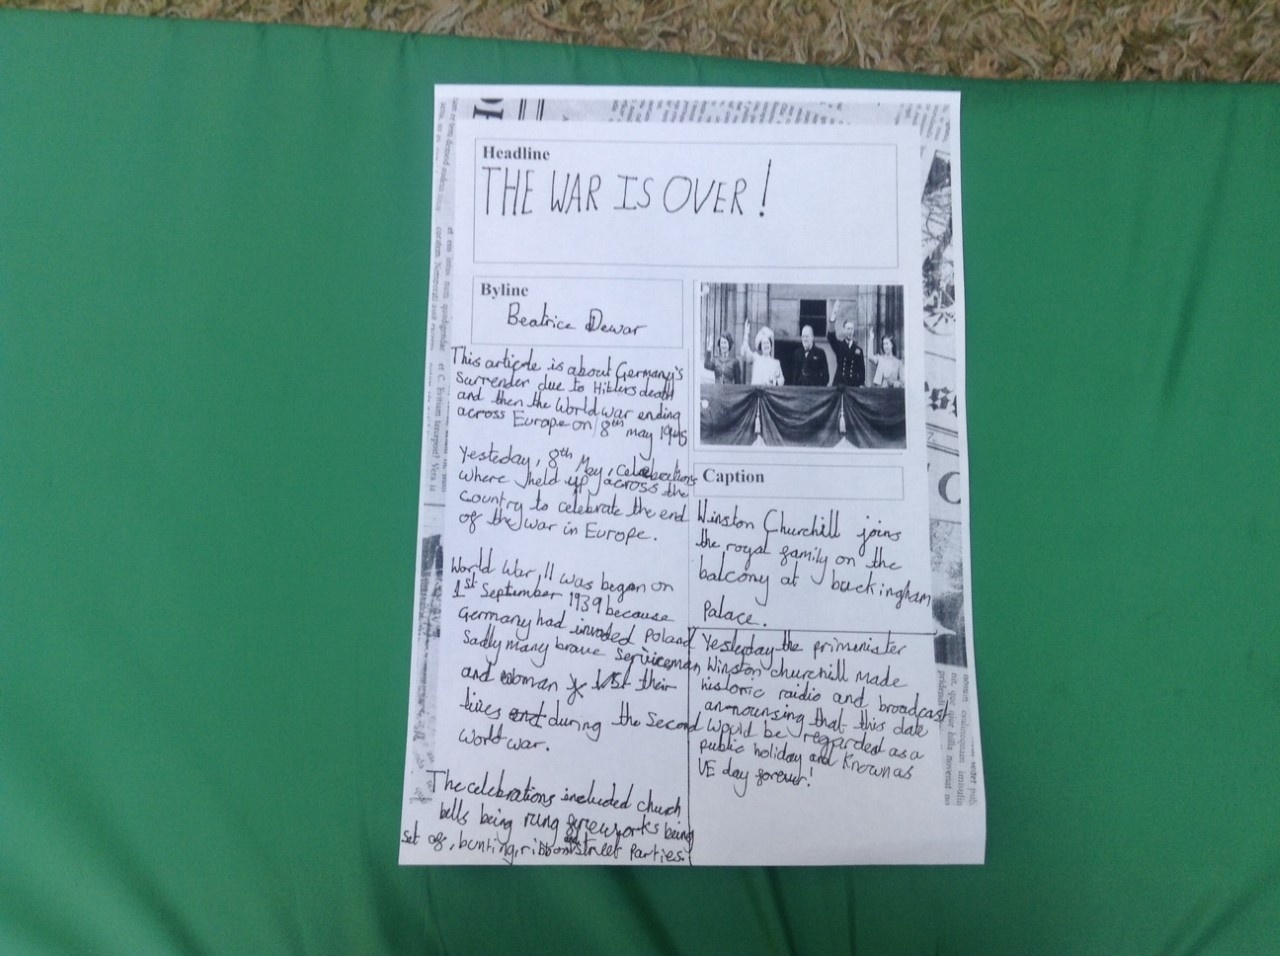 Headline
THE WAR IS OVER!
Byline
Beatrice Dewar
This article is about Germany's
Surrender due to Hitlers death
and then the World war ending
across Europe on 8th may 1945
Yesteday, 8th May, celebrations
where held up across the
country to celebrate the end
of the war in Europe.
World War II was began on
1st September 1939 because
Germany had invaded Poland
Sadly many brave Serviceman
and woman lost their
lives and during the Second
World war.
The celebrations included church
bells being rung fireworks being
set of, bunting, ribbon and street Parties.
Caption
Winston Churchill joins
the royal family on the
balcony at buckingham
Palace.
Yesteday the primenister
Winston churchill made
historic raidio and broadcast
announsing that this date
would be regarded as a
public holiday and Known as
VE day forever!